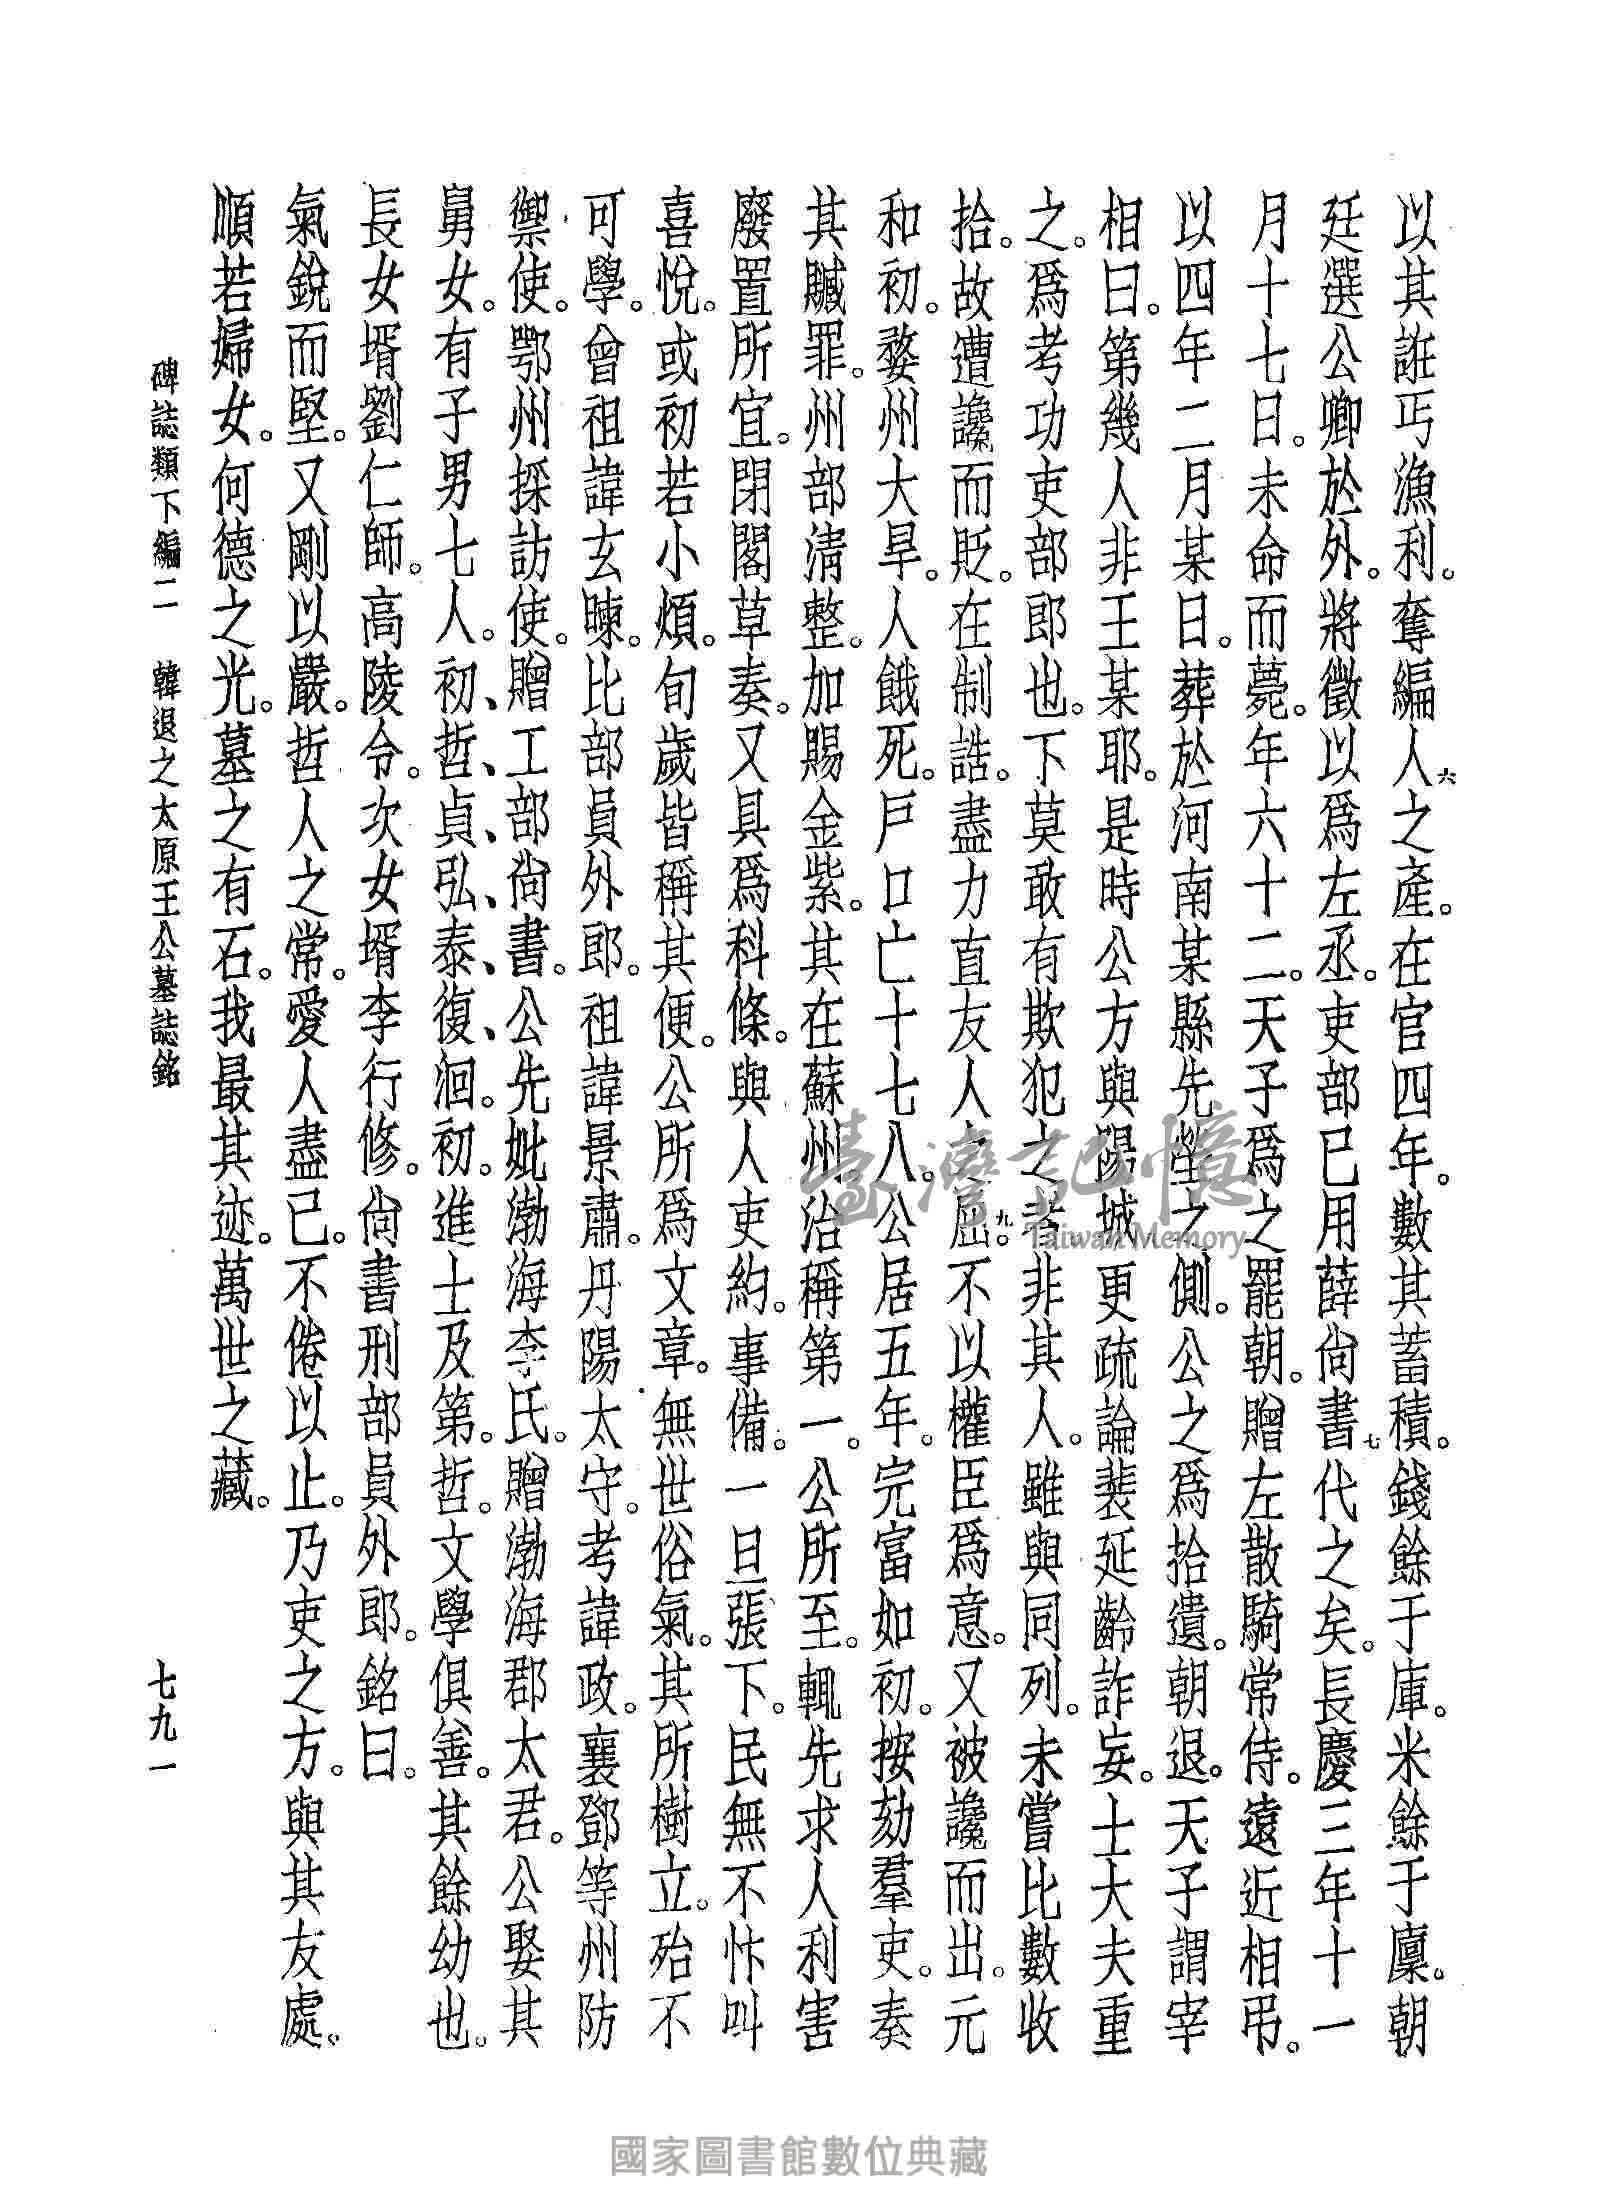 以其誑丐漁利。奪編人六之產。在官四年。數其蓄積。錢餘于庫。米餘于廩。朝
廷選公卿於外。將徵以爲左丞。吏部已用薛尙書七代之矣。長慶三年十一
月十七日。未命而薨。年六十二。天子爲之罷朝。贈左散騎常侍。遠近相弔。
以四年二月某日。葬於河南某縣先塋之側。公之爲拾遺。朝退。天子謂宰
相曰。第幾人非王某耶。是時公方與陽城更疏論裴延齡詐妄。士大夫重
之。爲考功吏部郎也。下莫敢有欺犯之者。非其人。雖與同列。未嘗比數收
拾。故遭讒而貶。在制誥。盡力直友人之屈。九不以權臣爲意。又被讒而出。元
和初。婺州大旱。人餓死。戶口亡十七八。公居五年。完富如初。按劾羣吏。奏
其贓罪。州部清整。加賜金紫。其在蘇州。治稱第一。公所至。輒先求人利害
廢置所宜。閉閤草奏。又具爲科條。與人吏約。事備。一旦張下。民無不忭叫
喜悅。或初若小煩。旬歲皆稱其便。公所爲文章。無世俗氣。其所樹立。殆不
可學。曾祖諱玄暕。比部員外郎。祖諱景肅。丹陽太守。考諱政。襄鄧等州防
禦使。鄂州採訪使。贈工部尙書。公先妣渤海李氏。贈渤海郡太君。公娶其
舅女。有子男七人。初、哲、貞、弘、泰、復、洄。初。進士及第。哲。文學俱善。其餘幼也。
長女壻劉仁師。高陵令。次女壻李行修。尙書刑部員外郎。銘曰。
氣銳而堅。又剛以嚴。哲人之常。愛人盡己。不倦以止。乃吏之方。與其友處。
順若婦女。何德之光。墓之有石。我最其迹。萬世之藏。
碑誌類下編二 韓退之太原王公墓誌銘
七九一
臺灣記憶
Taiwan Memory
國家圖書館數位典藏